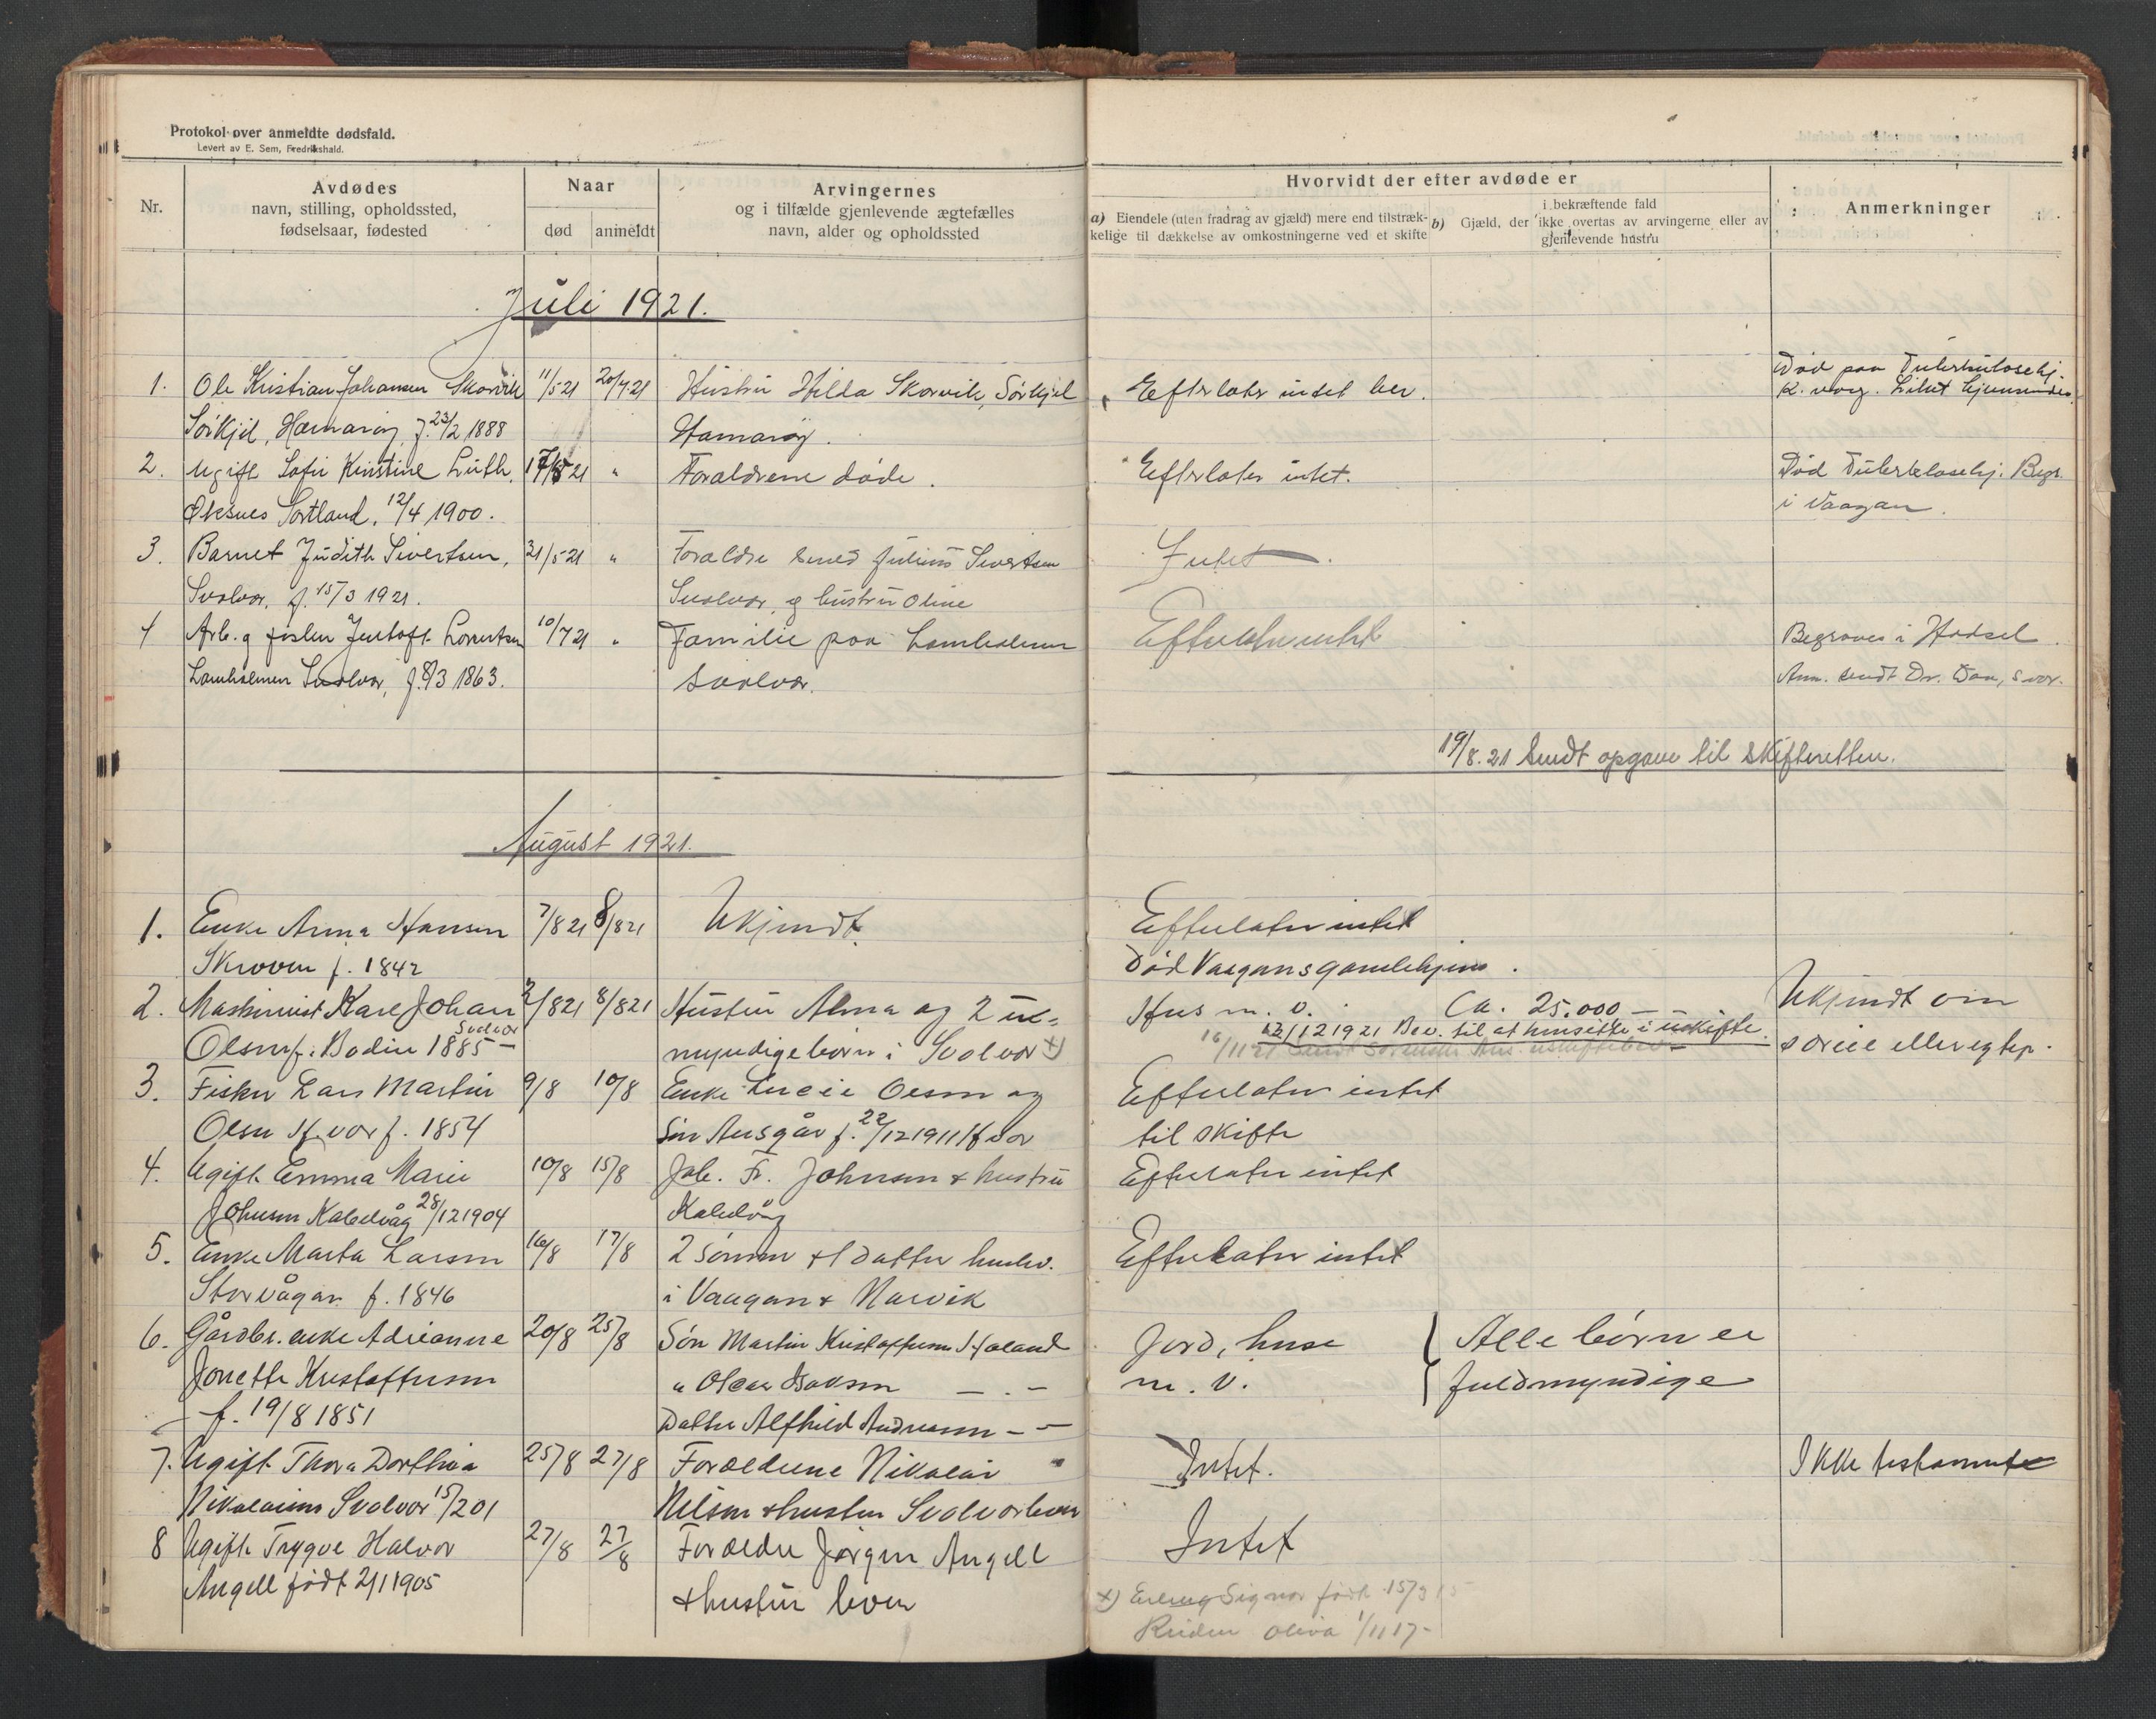 Protokol over anmeldte dødsfald.
Levert av E. Sem, Fredrikshald.
Nr.
Avdødes
navn, stilling, opholdssted,
fødselsaar, fødested
Naar
død anmeldt
Arvingernes
og i tilfælde gjenlevende ægtefælles
navn, alder og opholdssted
Hvorvidt der efter avdøde er
a) Eiendele (uten fradrag av gjæld) mere end tilstræk-
kelige til dækkelse av omkostningerne ved et skifte
i bekræftende fald
b) Gjæld, der ikke overtas av arvingerne eller av
gjenlevende hustru
Anmerkninger
Juli 1921.
1. Ole Kristian Johansen Skorvik 11/5 21 20/7 21 Hustru Hilda Skorvik, Sørkjil Efterlater intet her. Død paa Tuberkulosehj.
Sørkjil, Hamarøy, f. 23/2 1888 Hamarøy.
2. Ugift Sofie Kristine Luth, 17/5 21 " Forældrene døde. Efterlater intet. Død Tuberklosehj. Begr.
Øksnes Sortland, 12/4 1900. i Vaagan.
3. Barnet Judith Sivertsen, 21/5 21 " Forældre smed Julius Sivertsen Intet.
Svolvær, f. 15/3 1921. Svolvær, og hustru Oline
4 Arb. og fisker Lorentsen 10/7 21 " Familie paa Lamholmen Efterlater intet Begraves i Hadsel.
Lamholmen Svolvær, f. 8/3 1863. Svolvær. Anm. sendt Dr. Svor.
19/8. 21 Sendt opgave til Skifteretten.
August 1921.
1. Enke Anna Hansen 7/8 21 8/8 21 Ukjendt. Efterlater intet
Skroven f. 1842 Død Vaagans gamlehjem.
2. Maskinist Karl Johan 2/8 21 8/8 21 Hustru Alma og 2 u- Hus m. v. Ca. 25.000 — Ukjendt om
Svolvær 12/12 1921 Bev. til at hensitte i uskifte.
Olsen f. i Bodin 1885 — myndige børn i Svolvær x) 16/11 21 Sendt særeie eller egtep.
3. Fisker Lars Martin 9/8 10/8 Enke Lucie Olsen og Efterlater intet
Olsen H.vær f. 1854 Søn Ansgår f. 22/12 1911 H.vær til skifte
4. Ugift Emma Marie 10/8 15/8 Joh. Fr. Johnsen & hustru Efterlater intet
Johnsen Kabelvåg 28/12 1904 Kabelvåg
5. Enke Marta Larsen 16/8 17/8 2 Sønner & 1 Datter henlev. Efterlater intet
Storvågan f. 1846 i Vaagan & Narvik
6. Gårdbr. enke Adrianne 20/8 25/8 Søn Martin Kristoffersen Høland Jord, huse Alle børn er
Jonette Kristoffersen " Olear Isaksen — . — m. v. fuldmyndige
f. 19/8 1851 Datter Alfhild Andreassen — —
7. Ugift Thora Dorthea 25/8 27/8 Forældrene Nikolai Intet. Ikke testamente
Nikolaisen Svolvær 15/2 01 Nilsen & hustru Svolvær lever
8 Ugift Trygve Halvor 27/8 27/8 Forældre Jørgen Angell Intet
Angell født 2/1 1905 & hustru lever
x) Erling Signor født 15/3 15
Reidun Oliva 1/11 17 —